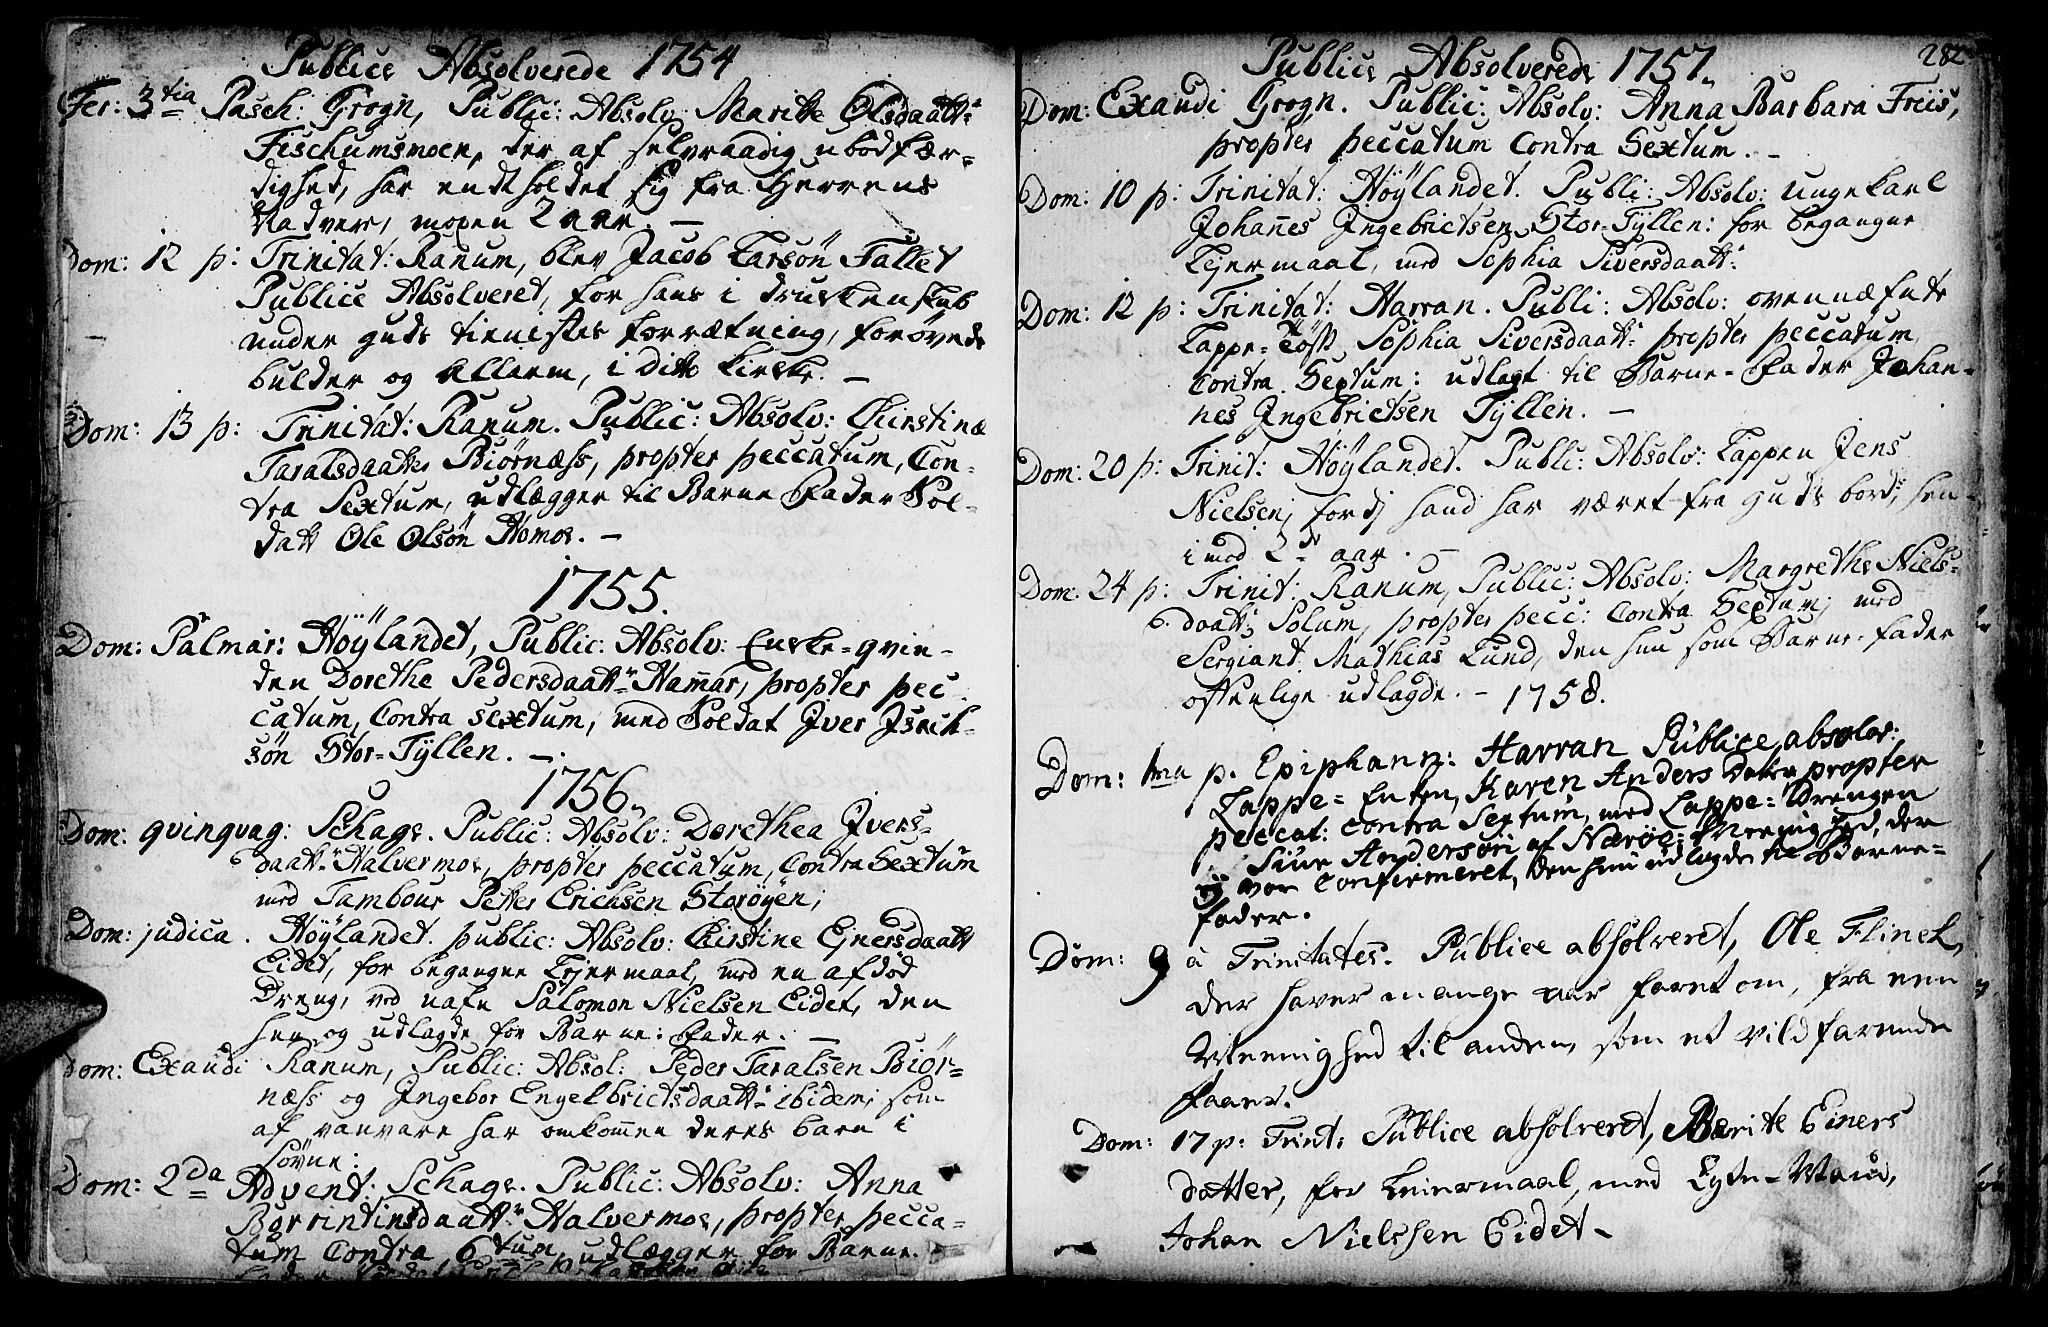 Publice Absolverede 1754
Fer: 3tia Pasch: Grogn, Public: Absolv: Maritte Olsdaatt:
Fischumsmoen, der af selvraadig ubodfær-
dighed, har endtholdet sig fra Herrens
Nadver, moxen 2 aar. —
Dom: 12 p: Trinitat: Ranum, blev Jacob Larsøn Fallet
Publice Absolveret, for hans i druckenskab
under guds tienistes forrætning, forøvede
bulder og Allarm, i ditto Kircke. —
Dom: 13 p: Trinitat: Ranum. Public: Absolv: Chirstinæ
Taralsdaatter Biørnæss, propter peccatum, Con-
tra Sextum, udlægger til Barne Fader Sol-
datt Ole Olsøn Homo. —
1755.
Dom: Palmar: Höÿlandet, Public: Absolv: Encke-qvin-
den Dorethe Pedersdaatt: Hammar, propter pec-
catum, Contra sextum, med Soldat Iver Isach-
søn Stor-Tÿllen. —.
1756.
Dom: qvinqvag: Schage. Public: Absolv: Dorethea Ivers-
daatt: Halvermoe, propter peccatum, Contra Sextum
med Tambour Petter Erichsen Storøyen;
Dom: judica. Höÿlandet. public: Absolv: Chirstine Ejnersdaatt
Eidet, for begangne Lejermaal, med en afdød
Dreng, ved nafn Salomon Nielsen Eidet, den
hun og udlagde for Barne: Fader. —
Dom: Exaudi Ranum, Public: Absol: Peder Taralsen Biør-
næss og Ingebor Engelbrictsdaatt: ibidem; som
af vanvare har omkommen deres barn i
søvne:
Dom: 2da Advent: Schage. Public: Absolv: Anna
Borrintinsdaatt: Halvermoe, propter pecca-
tum Contra 6tum, udlægger for Barne.
282
Publice Absolverede 1757.
Dom: Exaudi Grogn. Public: Absolv: Anna Barbara Friis,
propter peccatum Contra Sextum. —
Dom: 10 p: Trinitat: Höÿlandet. Publi: Absolv: unge karl
Johannes Ingebrictsen Stor-Tÿllen: for begangne
Lejermaal, med Sophia Siversdaatt:
Dom: 12 p: Trinitat: Harran. Publi: Absolv: ovennæfnte
Lappe-Töss Sophia Siversdaatt: propter peccatum
Contra Sextum: udlagt til Barne-Fader Johan-
nes Ingebrictsen Tÿllen. —
Dom: 20 p: Trinit: Höÿlandet. Public: Absolv: Lappen Jens
Nielsen; fordj hand har været fra guds bord, hen-
imod 2de aar. —
Dom: 24 p: Trinit: Ranum, Public: Absolv: Margrethe Niels-
daatt: Solum, propter pecc: Contra Sextum; med
Sergiant Mathias Lund, den hun som Barne-fader
offenlige udlagde. — 1758.
Dom: 1ma p. Epiphann: Harran Publice absolv:
Lappe-Enken, Karen Anders Datter propter
peccat: contra Sextum, med Lappe-Drengen
Siur Andersøn af Nærøe: Meenighed, der
ej var Confirmeret, den hun udlagde til Barne-
fader.
Dom: 9 à Trinitates. Publice absolveret, Ole Flinck,
der haver mange aar faret om, fra een
Meenighed til anden, som et vildfarende
faaer.
Dom: 17 p: Trint: Publice absolveret, Berite Einers
datter, for Leiermaal, med
Johan Nielssen Eidet —